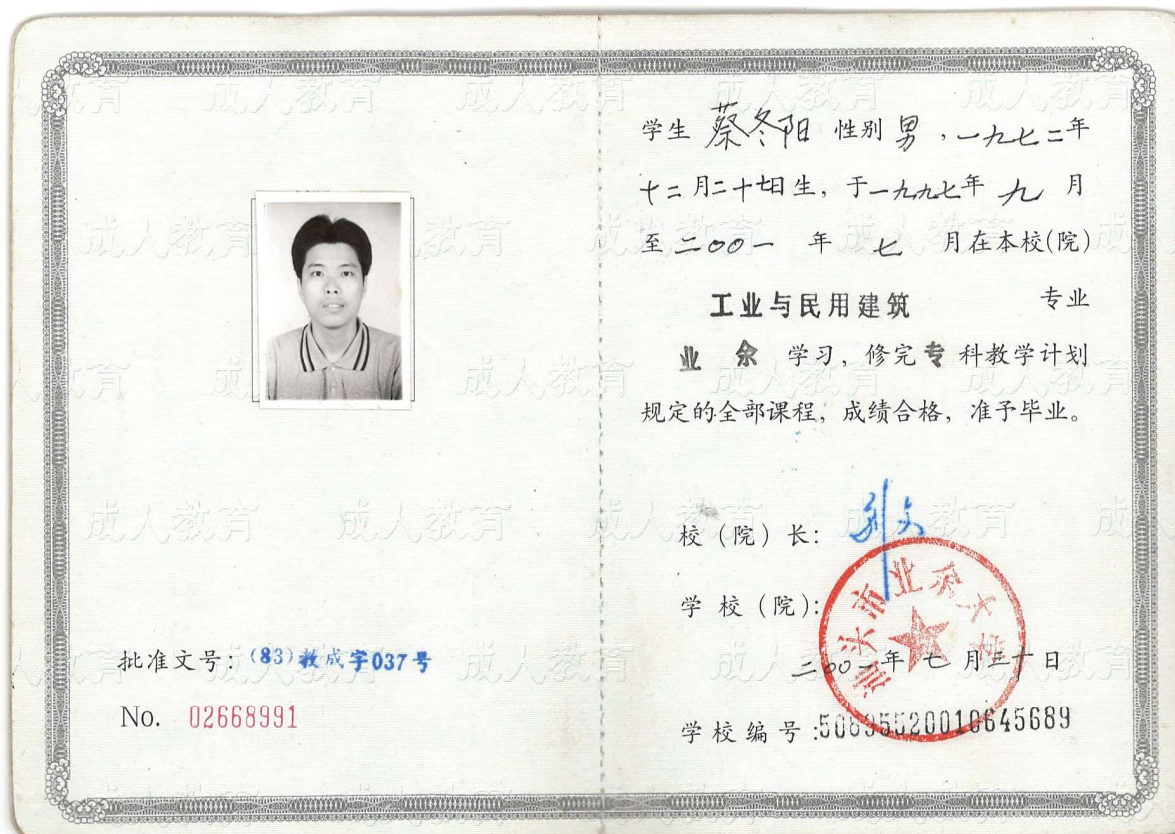 批准文号：(83)教成字037号
No. 02668991
学生 蔡冬阳 性别 男，一九七二年
十二月二十七日生，于一九九七年 九 月
至二〇〇一 年 七 月在本校(院)
工业与民用建筑 专业
业余 学习，修完专科教学计划
规定的全部课程，成绩合格，准予毕业。
校（院）长：
学校（院）：
汕头市业余大学
二〇〇一年七月三十日
学校编号：50695520010645689
成人教育